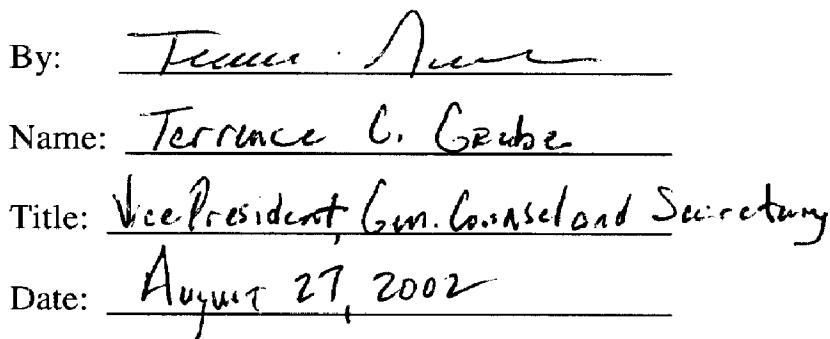 By:
Name: Terrence C. Grube
Title: Vice President, Gen. Counsel and Secretary
Date: August 27, 2002